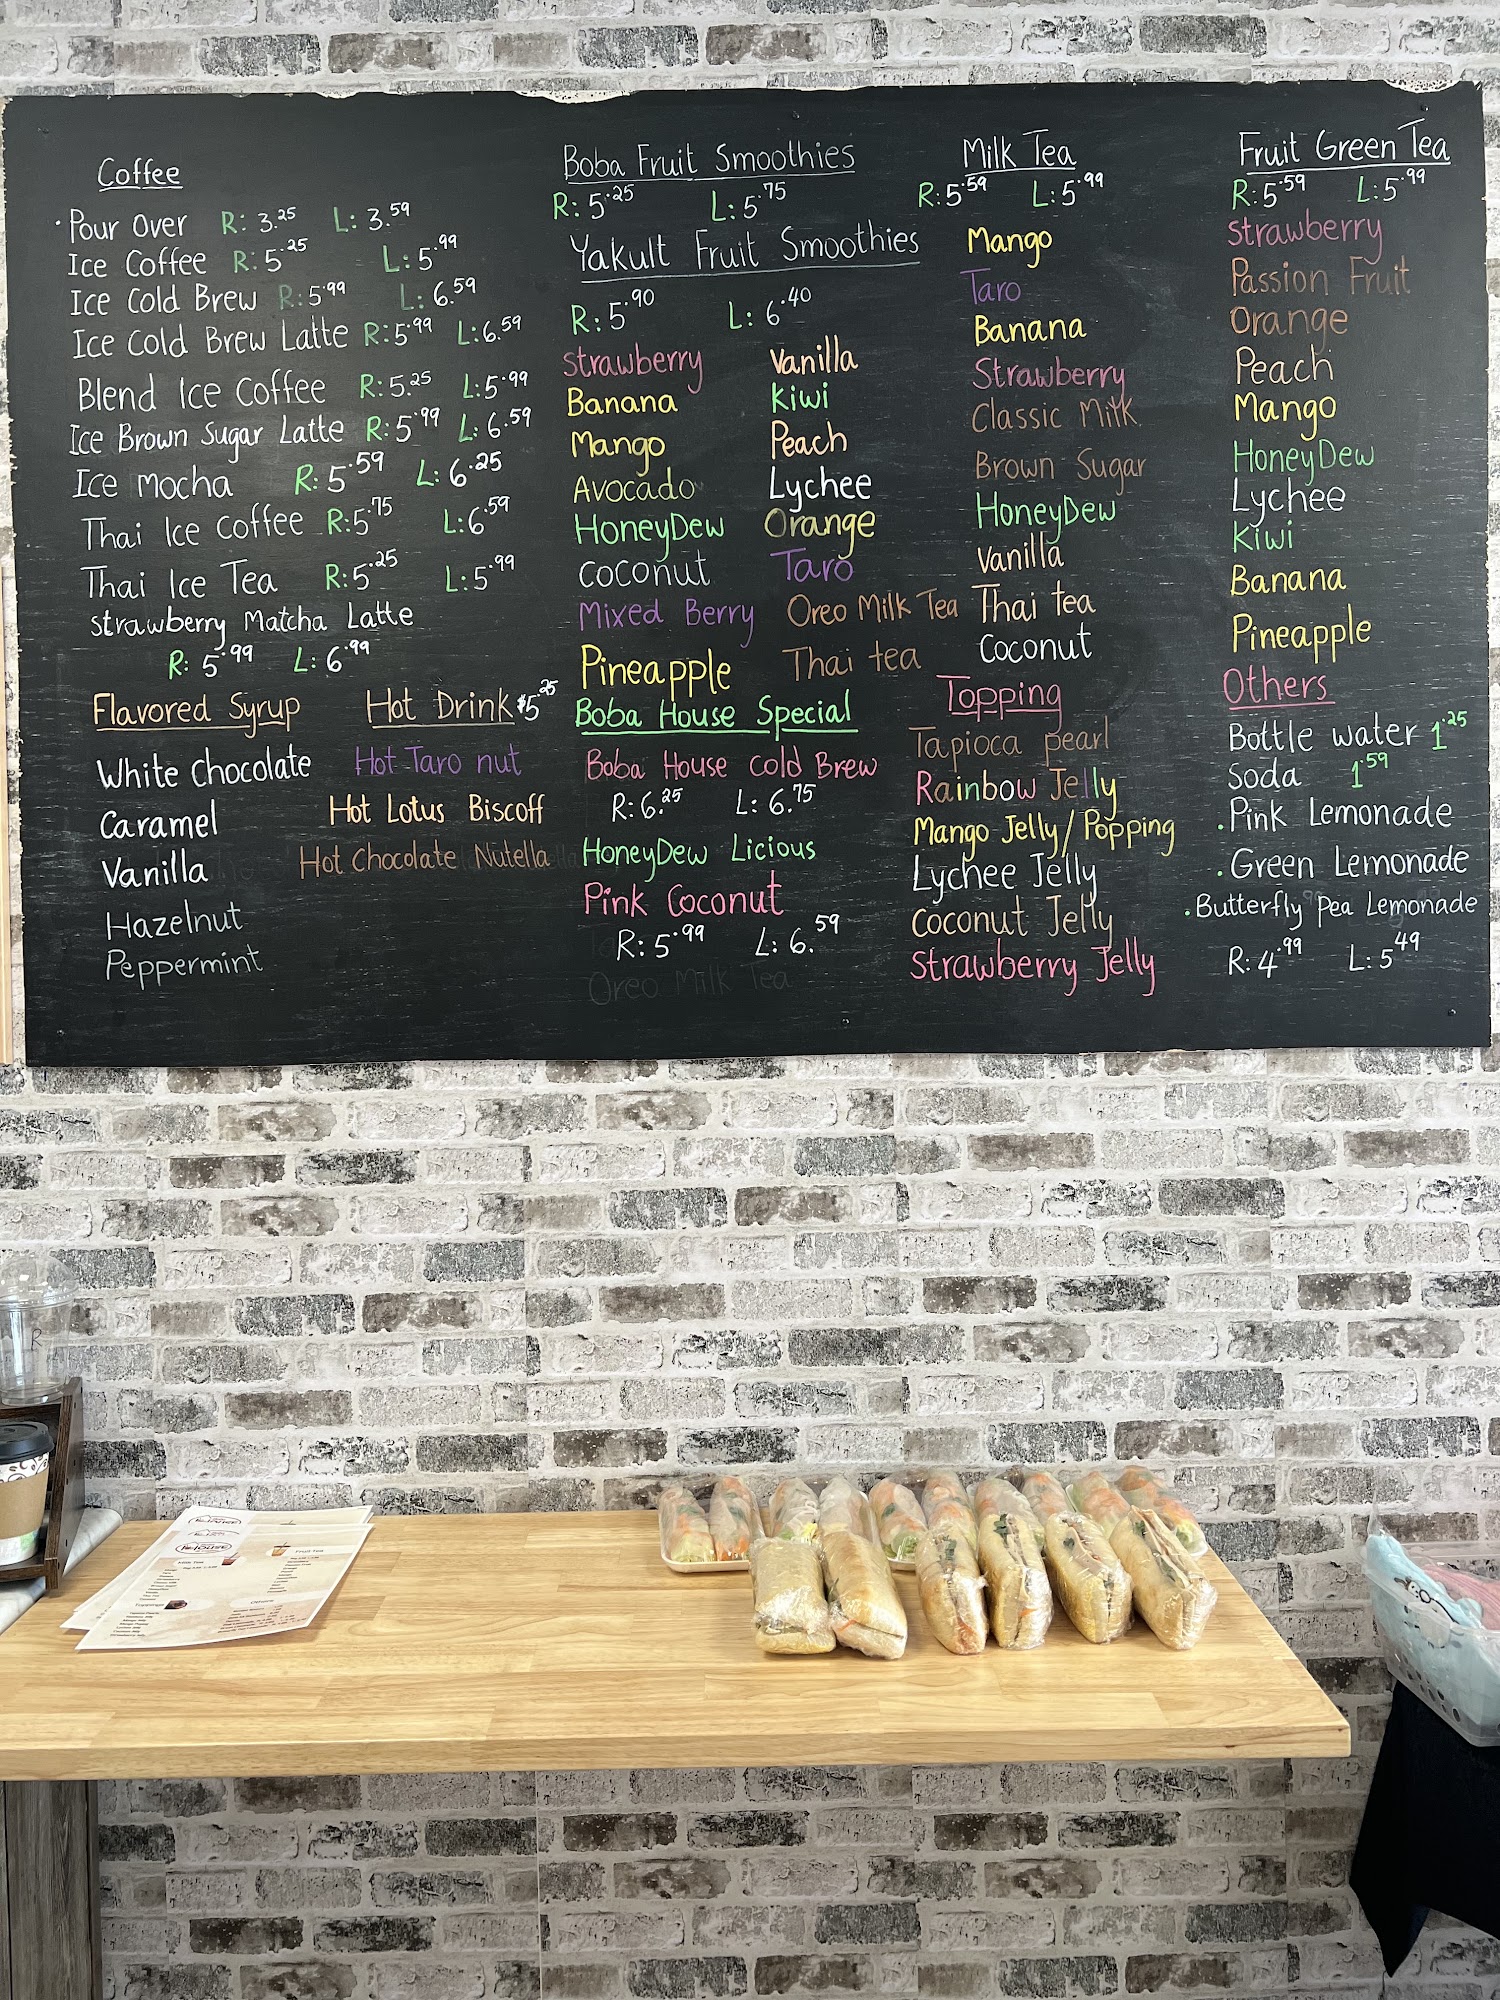 Coffee
· Pour Over R: 3.25 L: 3.59
Ice Coffee R: 5.25 L: 5.99
Ice Cold Brew R: 5.99 L: 6.59
Ice Cold Brew Latte R: 5.99 L: 6.59
Blend Ice Coffee R: 5.25 L: 5.99
Ice Brown Sugar Latte R: 5.99 L: 6.59
Ice mocha R: 5.59 L: 6.25
Thai Ice Coffee R: 5.75 L: 6.59
Thai Ice Tea R: 5.25 L: 5.99
strawberry Matcha Latte
R: 5.99 L: 6.99
Flavored Syrup
White Chocolate
Caramel
Vanilla
Hazelnut
Peppermint
Hot Drink $5.25
Hot Taro nut
Hot Lotus Biscoff
Hot Chocolate Nutella
Boba Fruit Smoothies
R: 5.25 L: 5.75
Yakult Fruit Smoothies
R: 5.90 L: 6.40
strawberry
Banana
Mango
Avocado
HoneyDew
Coconut
Mixed Berry
Pineapple
Vanilla
Kiwi
Peach
Lychee
Orange
Taro
Oreo Milk Tea
Thai tea
Boba House Special
Boba House Cold Brew
R: 6.25 L: 6.75
HoneyDew Licious
Pink Coconut
R: 5.99 L: 6.59
Oreo Milk Tea
Milk Tea
R: 5.59 L: 5.99
Mango
Taro
Banana
Strawberry
Classic Milk
Brown Sugar
HoneyDew
Vanilla
Thai tea
Coconut
Topping
Tapioca pearl
Rainbow Jelly
Mango Jelly/Popping
Lychee Jelly
Coconut Jelly
Strawberry Jelly
Fruit Green Tea
R: 5.59 L: 5.99
Strawberry
Passion Fruit
Orange
Peach
Mango
HoneyDew
Lychee
Kiwi
Banana
Pineapple
Others
Bottle water 1.25
Soda 1.59
· Pink Lemonade
· Green Lemonade
· Butterfly pea Lemonade
R: 4.99 L: 5.49
R
House
Milk Tea
Fruit Tea
Toppings
Others